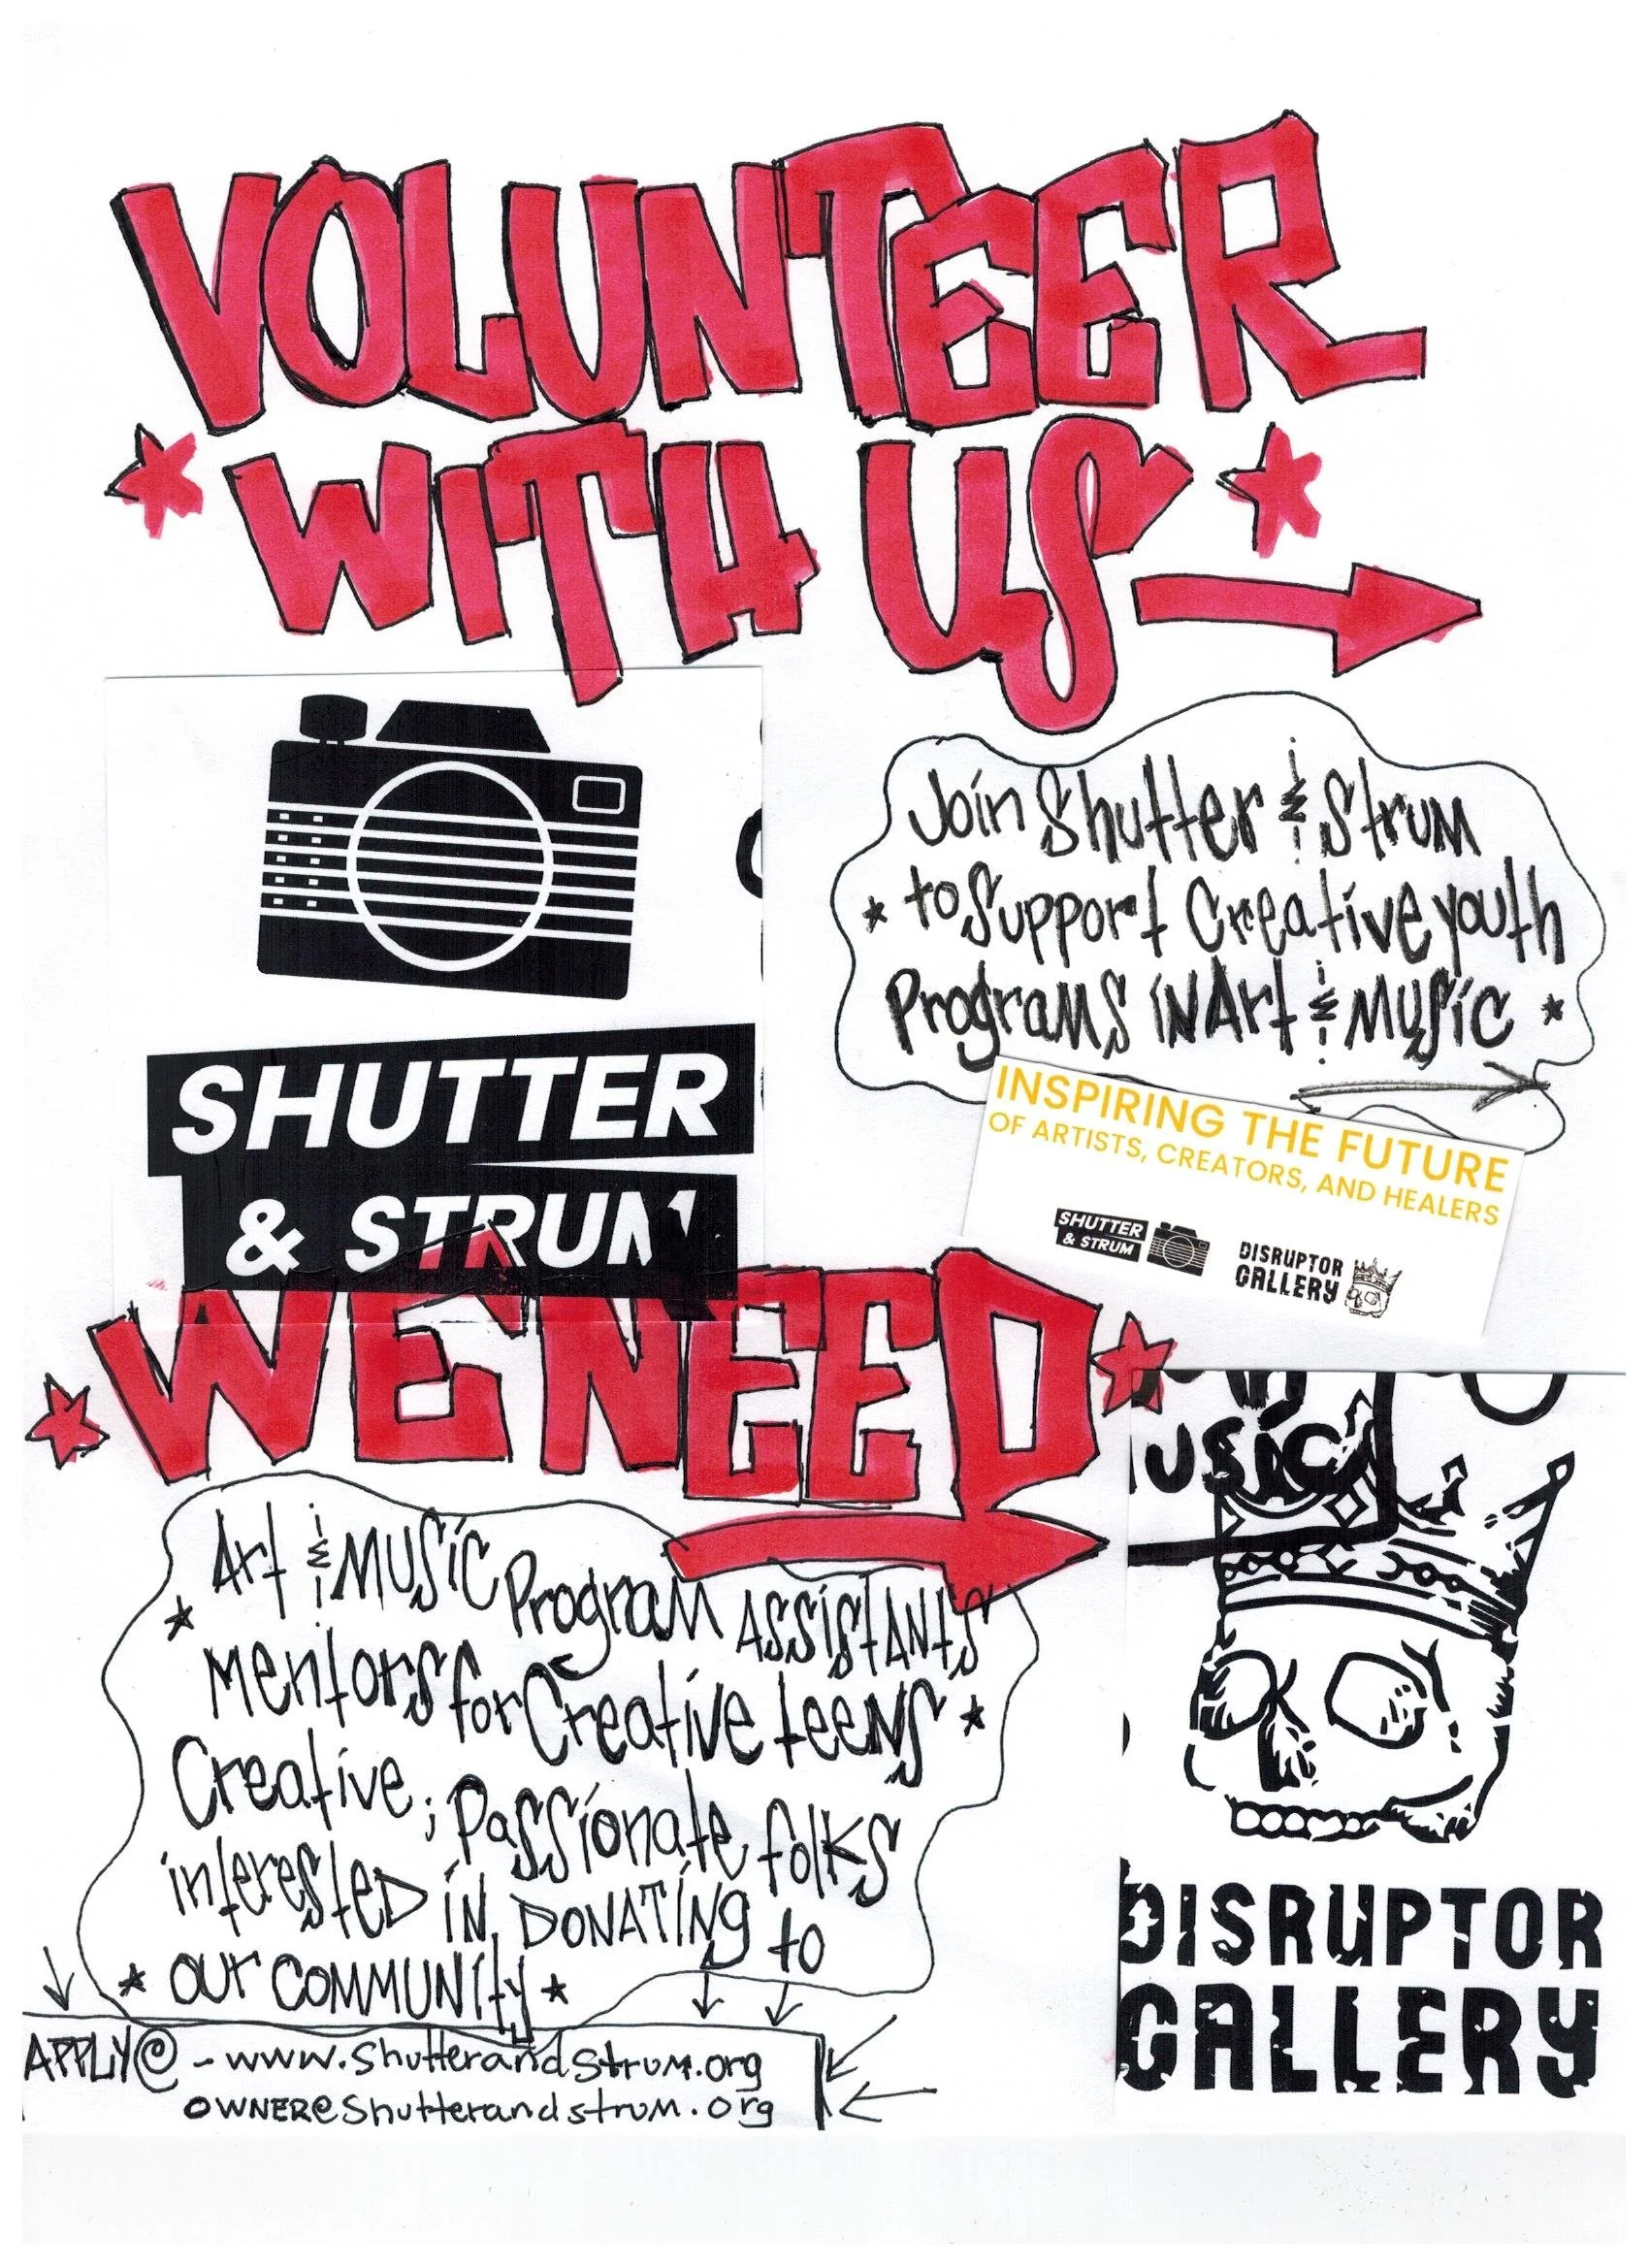 VOLUNTEER
WITH US
Join Shutter & Strum
to Support Creative youth
Programs in Art & Music
SHUTTER
& STRUM
INSPIRING THE FUTURE
OF ARTISTS, CREATORS, AND HEALERS
SHUTTER
& STRUM
DISRUPTOR
GALLERY
WE NEED
USIC
Art & Music Program Assistants
Mentors for Creative teens
Creative, ; Passionate folks
interested in Donating to
our community
DISRUPTOR
GALLERY
APPLY@ - www.shutterandstrum.org
owner@shutterandstrum.org